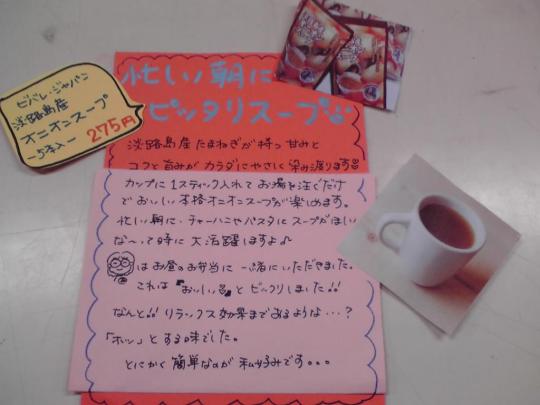 ビバレ・ジャパン
淡路島産
オニオンスープ
-5本入- 275円
忙しい朝に
ピッタリスープ
淡路島産たまねぎが持つ甘みと
コクと旨みがカラダにやさしく染み渡ります
カップに1スティック入れてお湯を注ぐだけ
でおいしい本格オニオンスープが楽しめます。
忙しい朝に、チャーハンやパスタにスープがほしい
な~って時に大活躍しますよ♪
はお昼のお弁当に一緒にいただきました。
これは『おいしい』とビックリしました!!
なんと!!リラックス効果まであるような…?
「ホッ」とする味でした。
とにかく簡単なのが私好みです。。。